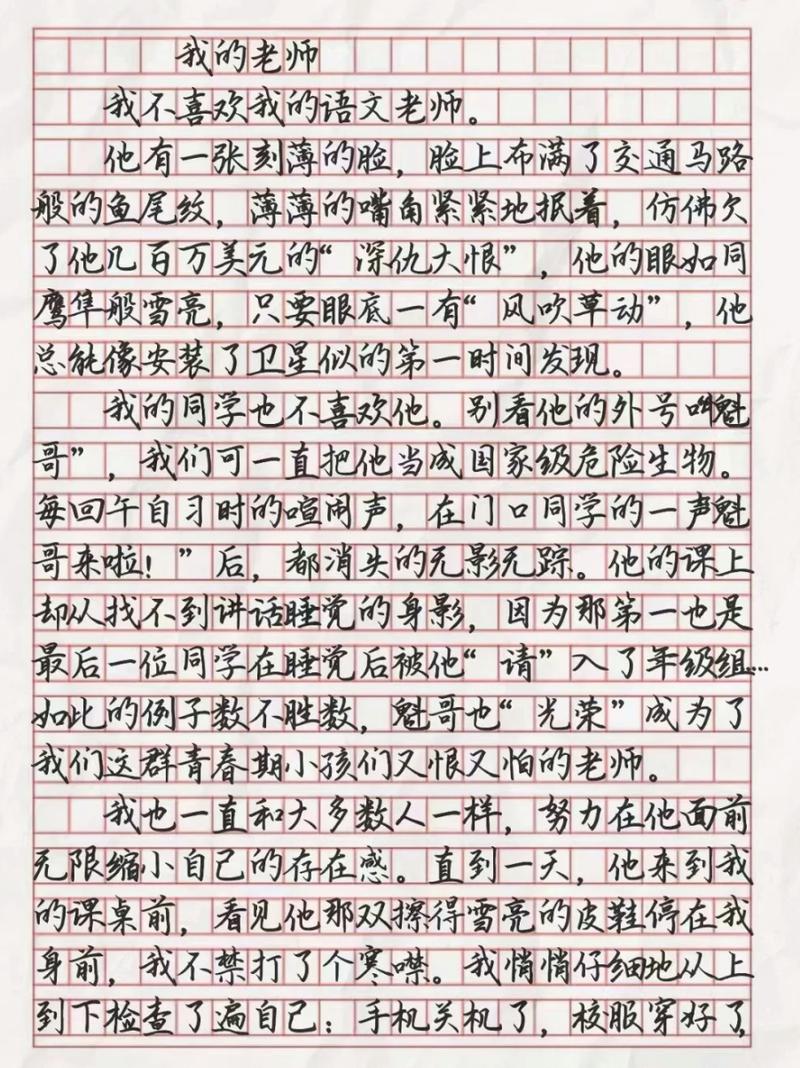 我的老师
我不喜欢我的语文老师。
他有一张刻薄的脸，脸上布满了交通马路
般的鱼尾纹，薄薄的嘴角紧紧地抿着，仿佛欠
了他几百万美元的“深仇大恨”，他的眼如同
鹰隼般雪亮，只要眼底一有“风吹草动”，他
总能像安装了卫星似的第一时间发现。
我的同学也不喜欢他。别看他的外号叫“魁
哥”，我们可一直把他当成国家级危险生物。
每回午自习时的喧闹声，在门口同学的一声“魁
哥来啦！”后，都消失的无影无踪。他的课上
却从找不到讲话睡觉的身影，因为那第一也是
最后一位同学在睡觉后被他“请”入了年级组…
如此的例子数不胜数，魁哥也“光荣”成为了
我们这群青春期小孩们又恨又怕的老师。
我也一直和大多数人一样，努力在他面前
无限缩小自己的存在感。直到一天，他来到我
的课桌前，看见他那双擦得雪亮的皮鞋停在我
身前，我不禁打了个寒噤。我悄悄仔细地从上
到下检查了遍自己：手机关机了，校服穿好了，